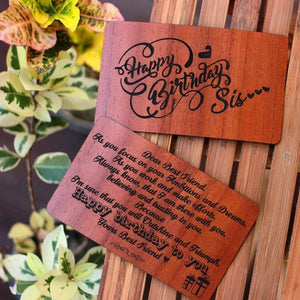 Happy
Birthday
Sis...
Dear Best Friend,
As you focus on your Ambitions and Dreams,
As you grow and make efforts.
Always know, that I am here too,
believing and rooting for you.
Because
I'm sure that you will Outshine and Triumph.
Happy birthday to you
Yours Best Friend